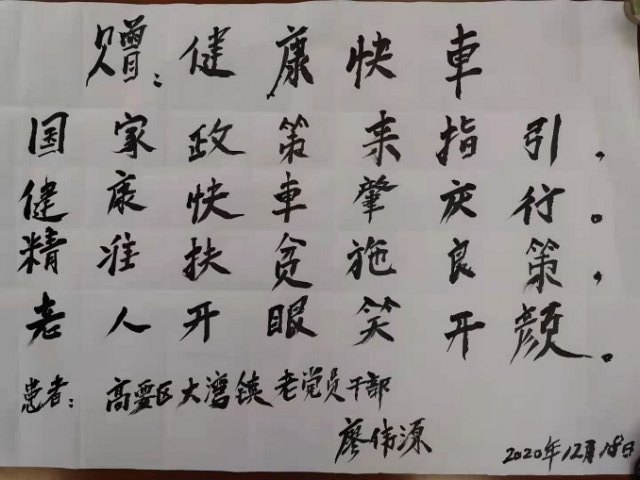 赠：健康快車
国家政策来指引，
健康快車肇庆行。
精准扶贫施良策，
老人开眼笑开颜。
患者：高要区大湾镇老党员干部
廖伟源
2020年12月18日